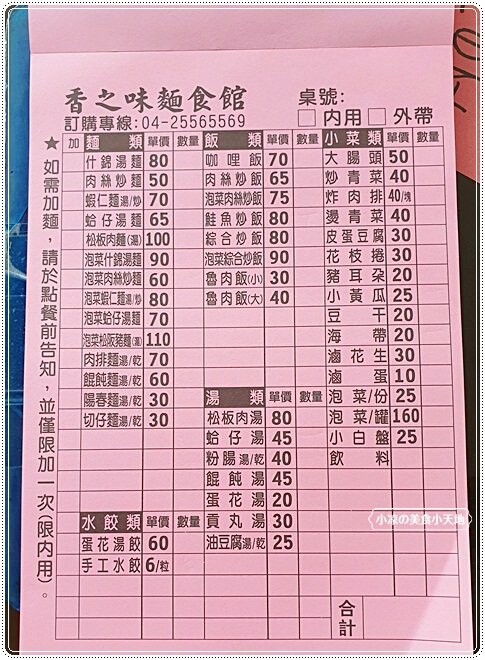 香之味麵食館
訂購專線:04-25565569
桌號:
□內用 □外帶
★如需加麵，請於點餐前告知，並僅限加一次(限內用)。
加 麵類 單價 數量
什錦湯麵 80
肉絲炒麵 50
蝦仁麵湯/炒 70
蛤仔湯麵 65
松板肉麵(湯) 100
泡菜什錦湯麵 90
泡菜肉絲炒麵 60
泡菜蝦仁麵湯/炒 80
泡菜蛤仔湯麵 70
泡菜松阪豬麵(湯) 110
肉排麵湯/乾 70
餛飩麵湯/乾 60
陽春麵湯/乾 30
切仔麵湯/乾 30
水餃類 單價 數量
蛋花湯餃 60
手工水餃 6/粒
飯類 單價 數量
咖哩飯 70
肉絲炒飯 65
泡菜肉絲炒飯 75
鮭魚炒飯 80
綜合炒飯 80
泡菜綜合炒飯 90
魯肉飯(小) 30
魯肉飯(大) 40
湯類 單價 數量
松板肉湯 80
蛤仔湯 45
粉腸湯/乾 40
餛飩湯 45
蛋花湯 20
貢丸湯 30
油豆腐湯/乾 25
小菜類 單價 數量
大腸頭 50
炒青菜 40
炸肉排 40/塊
燙青菜 40
皮蛋豆腐 30
花枝捲 30
豬耳朵 20
小黃瓜 25
豆干 20
海帶 20
滷花生 30
滷蛋 10
泡菜/份 25
泡菜/罐 160
小白盤 25
飲料
合計
小凉の美食小天地